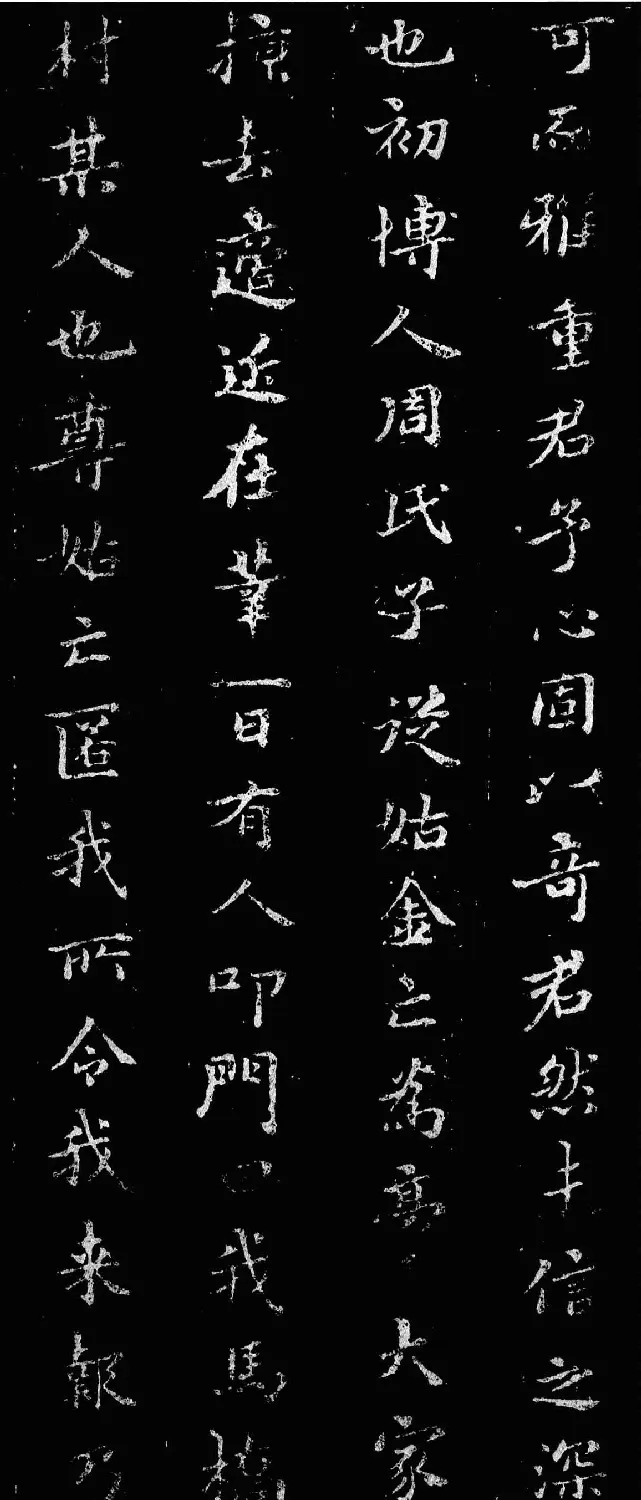 可而雅重君子心固以奇君然未信之深
也初博人周氏子從姑金亡為高大家
掠去適近在肇一日有人叩門曰我馬橋
村某人也尊姑亡匿我所令我来報乃